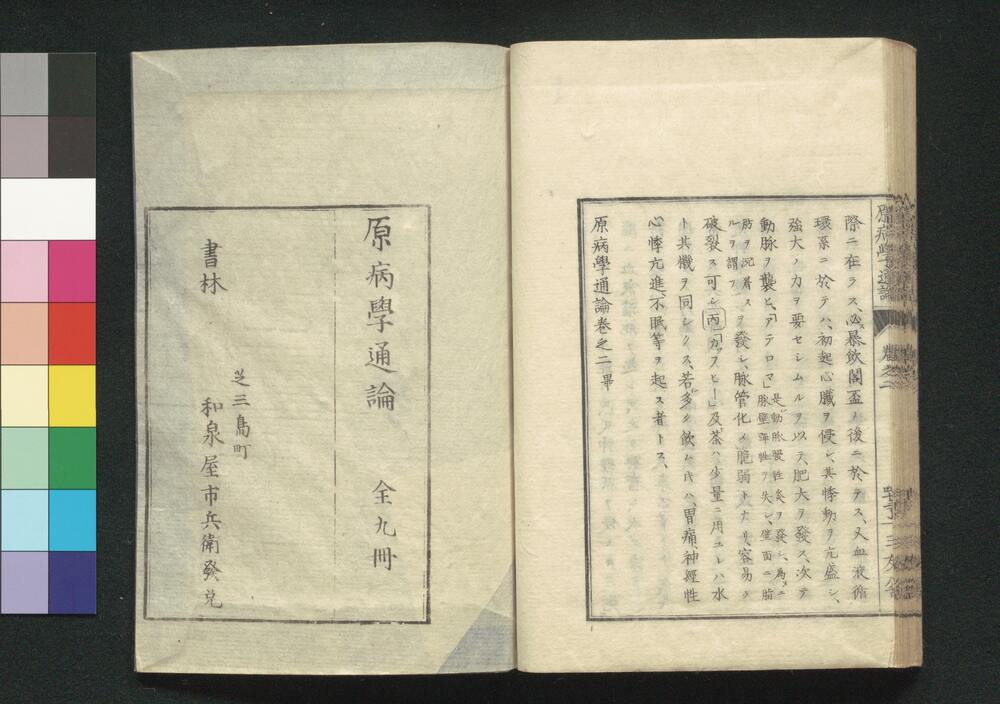 際ニ在ラス、必暴飲闔盃ノ後ニ於テス、又血液循
環系ニ於テハ、初起心臓ヲ侵シ、其悸動ヲ亢盛シ、
強大ノ力ヲ要セシムルヲ以テ、肥大ヲ發ス、次テ
動脈ヲ襲ヒ、「アテロマ」是動脉慢性炎ヲ發シ、為メニ脉壁弾性ヲ失シ、壁面ニ脂
肪ヲ沉着スルヲ謂フヲ發シ、脉管化メ脆弱トナリ、容易ク
破裂ス可シ丙「カフヒー」及荼ハ少量ニ用ユレハ水
ト其機ヲ同シクス、若多ク飲ム時ハ、胃痛、神經性
心悸亢進、不眠等ヲ起ス者トス、
原病學通論巻之二畢
原病學通論
巻之二
三友舎
原病學通論 全九冊
書林
芝三島町
和泉屋市兵衛發兌